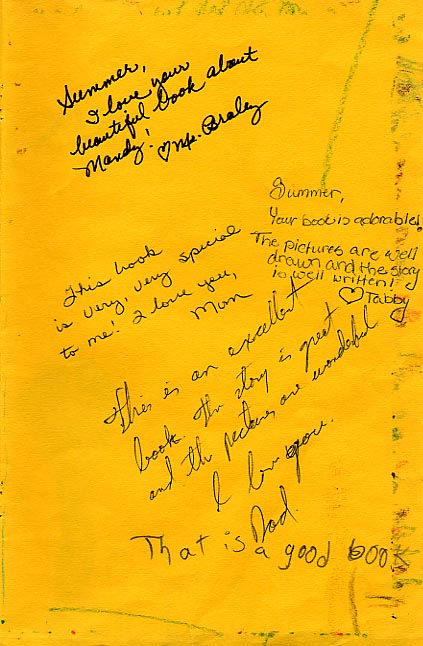 Summer,
I love your
beautiful book about
Mandy!
♡ Mrs. Braley
Summer,
Your book is adorable!
The pictures are well
drawn and the story
is well written!
♡ Tabby
This book
is very, very special
to me! I love you,
Mom
This is an excellent
book. The story is great
and the pictures are wonderful
I love you.
Dad.
That is a good book.